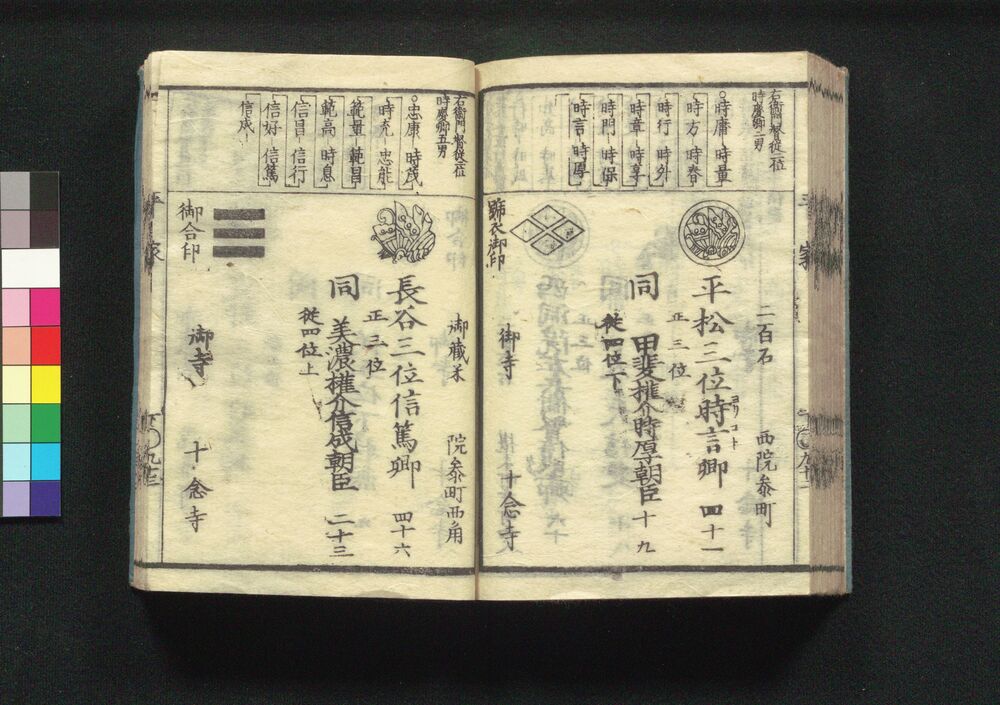 右衛門督従二位
時慶卿二男
時庸 時量
時方 時春
時行 時外
時章 時享
時門 時保
時言 時厚
二百石
西院参町
平松三位時言卿 四十一
トキコト
正三位
同 甲斐権介時厚朝臣 十九
従四位下
御寺 十念寺
平家
右衛門督従二位
時慶卿五男
忠康 時茂
時充 忠能
範量 範昌
範高 時息
信昌 信行
信好 信篤
信成
御蔵米
院参町西角
長谷三位信篤卿 四十六
正三位
同 美濃権介信成朝臣 二十三
従四位上
御合印
御寺 十念寺
平家